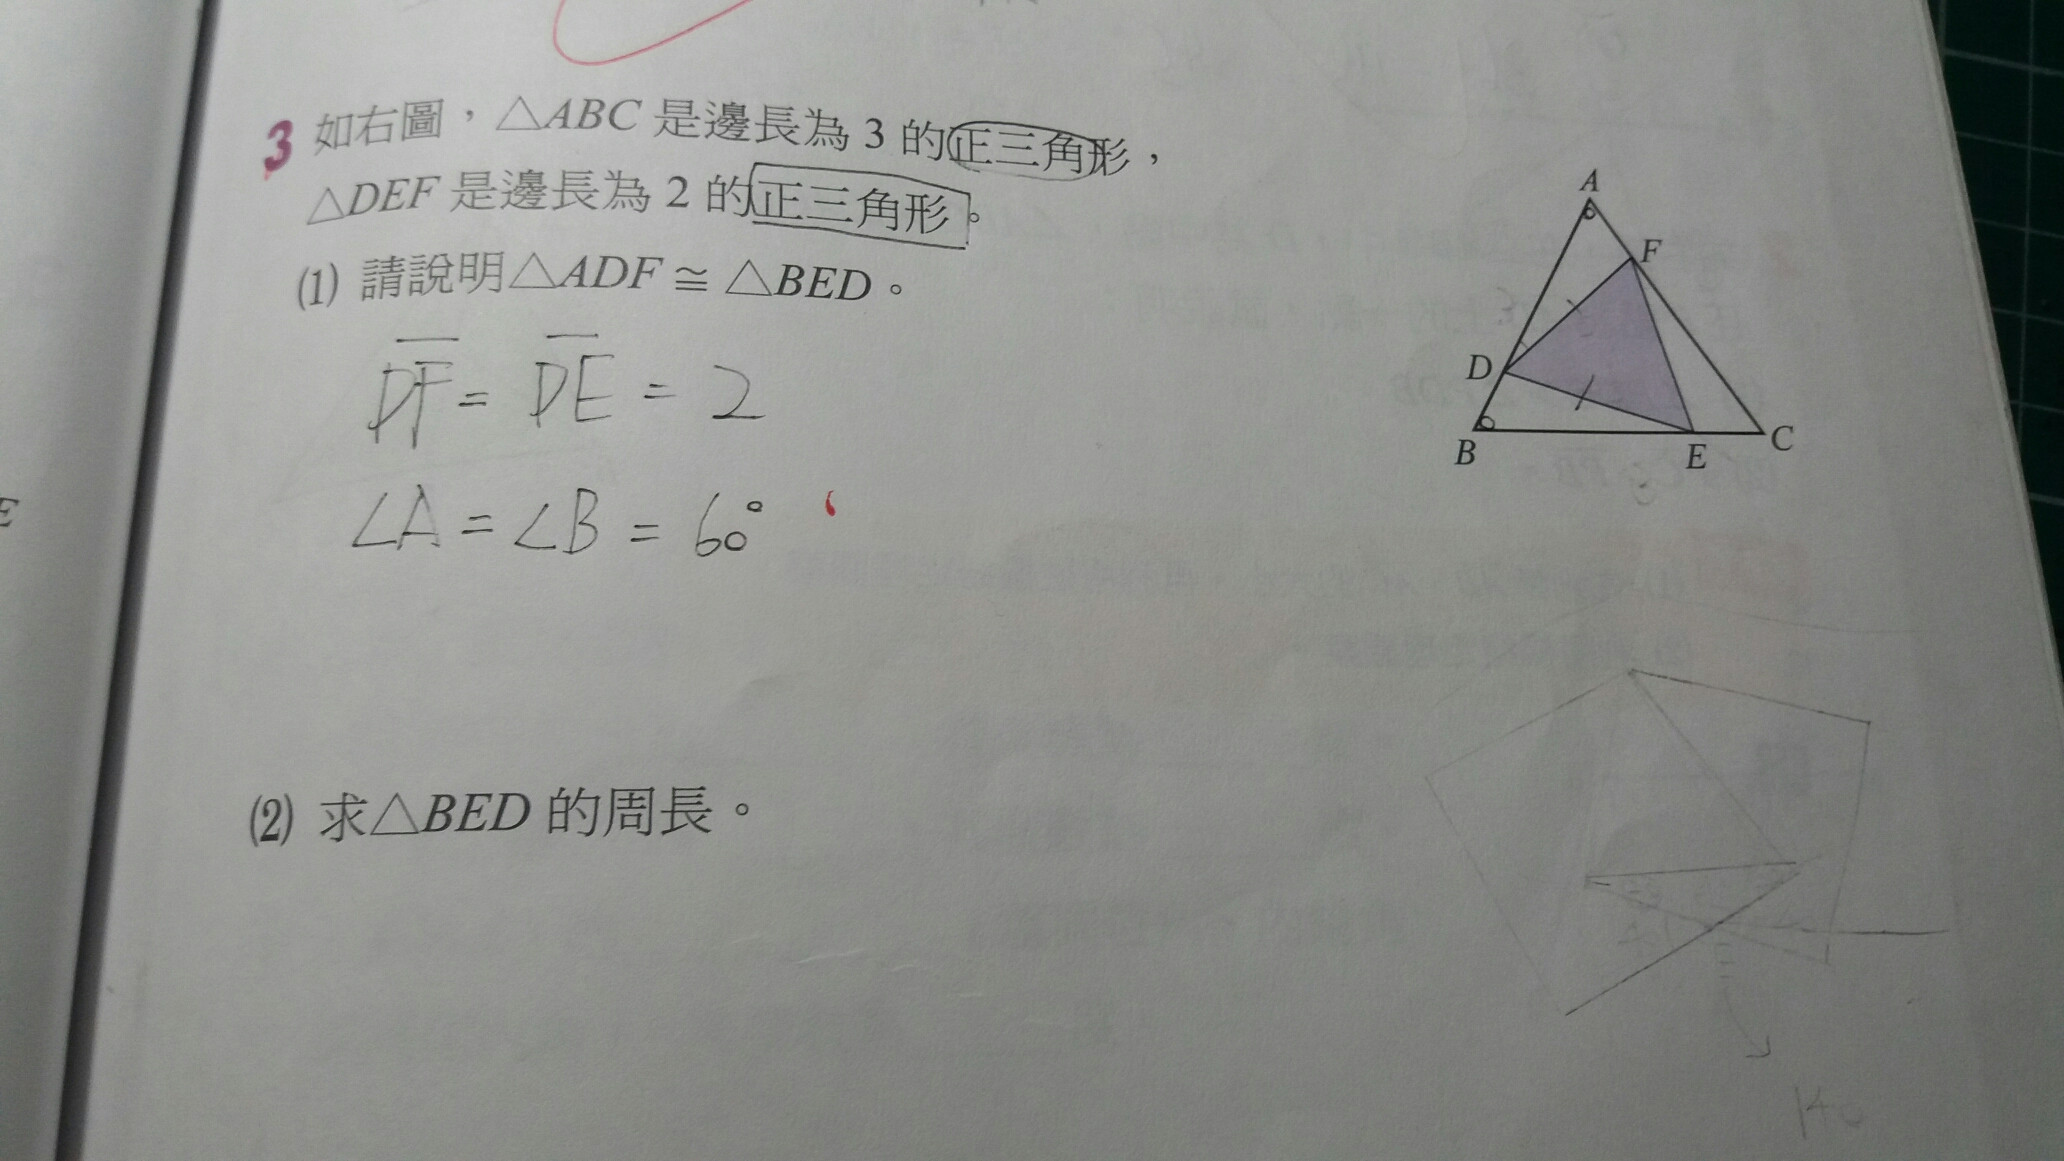 3 如右圖，△ABC 是邊長為 3 的正三角形，
△DEF 是邊長為 2 的正三角形。
(1) 請說明△ADF ≅ △BED。
DF = DE = 2
∠A = ∠B = 60°
(2) 求△BED 的周長。
A
F
D
B
E
C
E